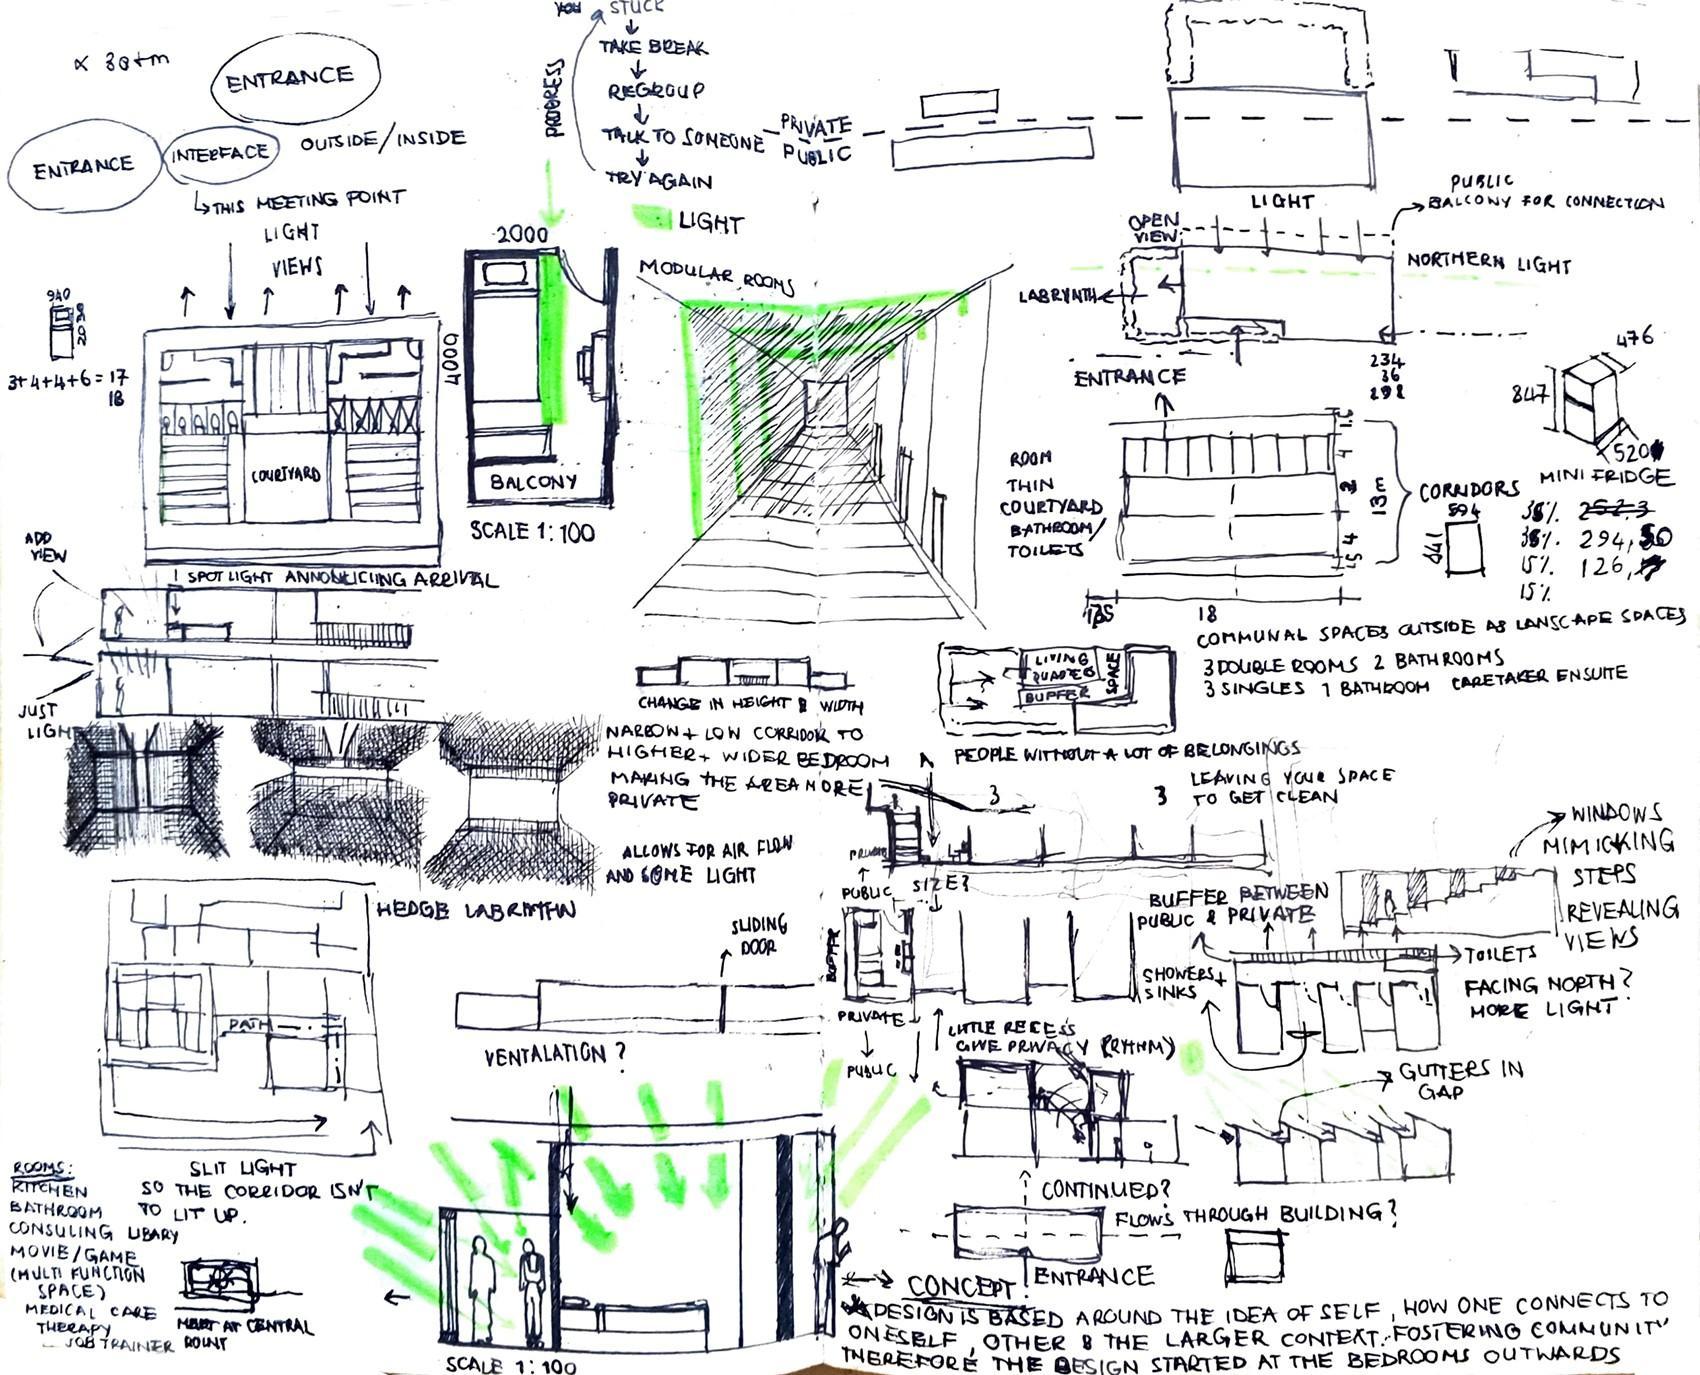 YOU
STUCK
TAKE BREAK
REGROUP
TALK TO SOMEONE
TRY AGAIN
PROGRESS
∝ 30+m
ENTRANCE
ENTRANCE
INTERFACE
OUTSIDE/INSIDE
THIS MEETING POINT
LIGHT
VIEWS
PRIVATE
PUBLIC
LIGHT
2000
4000
BALCONY
SCALE 1:100
MODULAR ROOMS
940
2030
3+4+4+6=17
18
COURTYARD
ADD
VIEW
SPOT LIGHT ANNONCIING ARRIVAL
JUST
LIGHT
LIGHT
PUBLIC
BALCONY FOR CONNECTION
OPEN
VIEW
NORTHERN LIGHT
LABRYNTH
ENTRANCE
234
36
292
476
847
520
MINI FRIDGE
ROOM
THIN
COURTYARD
BATHROOM/
TOILETS
1.5
4
2
4
1.5
13m
18
CORRIDORS
594
841
294,
15% 126,
15%
COMMUNAL SPACES OUTSIDE AS LANSCAPE SPACES
3 DOUBLE ROOMS 2 BATHROOMS
3 SINGLES 1 BATHROOM CARETAKER ENSUITE
LIVING
QUATERS
BUFFER
SPACE
CHANGE IN HEIGHT & WIDTH
NARROW + LOW CORRIDOR TO
HIGHER + WIDER BEDROOM
MAKING THE AREA MORE
PRIVATE
ALLOWS FOR AIR FLOW
AND SOME LIGHT
PEOPLE WITHOUT A LOT OF BELONGINGS
LEAVING YOUR SPACE
TO GET CLEAN
3
3
PRIVATE
PUBLIC
SIZE?
BUFFER
PRIVATE
PUBLIC
BUFFER BETWEEN
PUBLIC & PRIVATE
WINDOWS
MIMICKING
STEPS
REVEALING
VIEWS
TOILETS
SHOWERS +
SINKS
FACING NORTH?
MORE LIGHT
HEDGE LABRYTHN
PATH
SLIDING
DOOR
VENTALATION?
LITTLE RECESS
GIVE PRIVACY (RYTHM)
GUTTERS IN
GAP
SLIT LIGHT
SO THE CORRIDOR ISN'T
TO LIT UP.
ROOMS:
KITCHEN
BATHROOM
CONSULING LIBARY
MOVIE/GAME
(MULTI FUNCTION
SPACE)
MEDICAL CARE
THERAPY
JOB TRAINER
MEET AT CENTRAL
POINT
SCALE 1:100
CONTINUED?
FLOWS THROUGH BUILDING?
ENTRANCE
CONCEPT:
DESIGN IS BASED AROUND THE IDEA OF SELF, HOW ONE CONNECTS TO
ONESELF, OTHER & THE LARGER CONTEXT. FOSTERING COMMUNITY
THEREFORE THE DESIGN STARTED AT THE BEDROOMS OUTWARDS